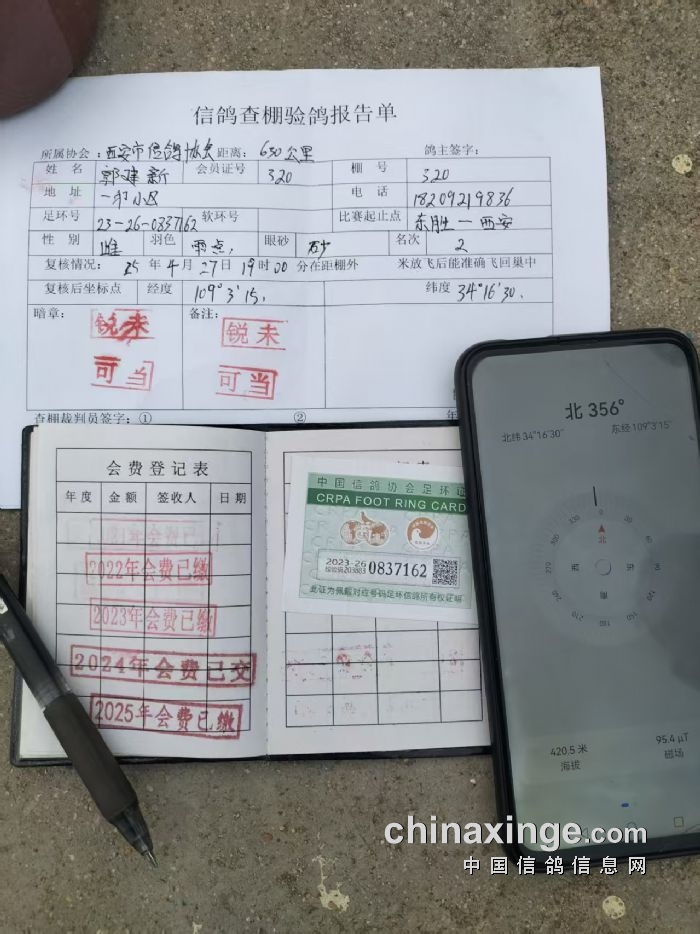 信鸽查棚验鸽报告单
所属协会：西安市信鸽协会 距离：630公里 鸽主签字：
姓名 郭建新 会员证号 320 棚号 320
地址 一印小区 电话 18209219836
足环号 23-26-0837162 软环号 比赛起止点 东胜—西安
性别 雌 羽色 雨点. 眼砂 砂 名次 2
复核情况： 25年4月27日19时00分在距棚外 米放飞后能准确飞回巢中
复核后坐标点 经度 109°3'15. 纬度 34°16'30.
暗章： 备注：
锐未 锐未
可当 可当
查棚裁判员签字：① ② 年
会费登记表
年度 金额 签收人 日期
21年会费已
2022年会费已缴
2023年会费已缴
2024年会费已交
2025年会费已缴
中国信鸽协会足环证
CRPA FOOT RING CARD
2023-26 0837162
此证为佩戴对应号码足环信鸽所有权证明
北 356°
北纬 34°16'30" 东经 109°3'15"
0
330 30
300 60
270 90
240 120
210 150
180
北
西 东
南
420.5 米 95.4 μT
海拔 磁场
chinaxinge.com
中国信鸽信息网